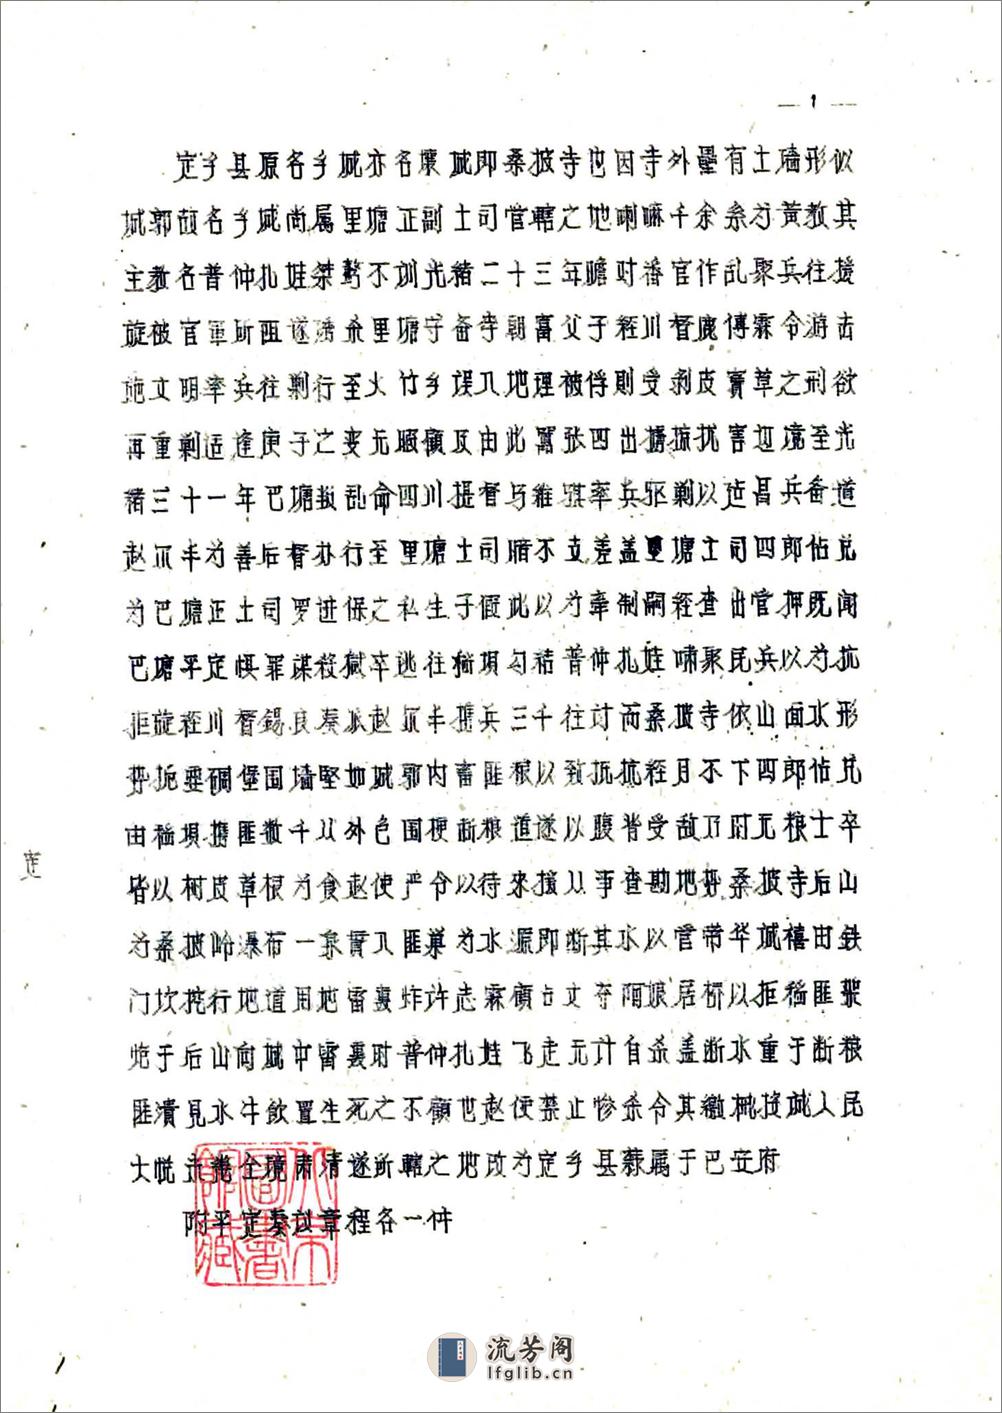 — 1 —
定乡县原名乡城亦名壤城即桑披寺也因寺外垒有土墙形似
城郭故名乡城尚属里塘正副土司管辖之地喇嘛千余系为黄教其
主教名普仲扎娃桀骜不驯光绪二十三年瞻对番官作乱聚兵往援
旋被官军所阻遂诱杀里塘守备李朝富父子经川督鹿傅霖令游击
施文明率兵往剿行至火竹乡误入地理被俘则受剥皮实草之刑欲
再重剿适逢庚子之变无暇顾及由此嚣张四出掳掠扰害边境至光
绪三十一年巴塘叛乱命四川提督马维骐率兵驱剿以建昌兵备道
赵尔丰为善后督办行至里塘土司暗不支差盖里塘土司四郎佔兑
为巴塘正土司罗进保之私生子假此以为牵制嗣经查出管押既闻
巴塘平定惧罪谋杀狱卒逃往稻坝勾结普仲扎娃啸聚民兵以为抗
拒旋经川督锡良奏派赵尔丰携兵三千往讨而桑披寺依山面水形
势扼要碉堡围墙坚如城郭内畜匪粮以致抵抗经月不下四郎佔兑
由稻坝携匪数千从外包围梗断粮道遂以腹背受敌乃时无粮士卒
皆以树皮草根为食赵使严令以待来援从事查勘地势桑披寺后山
为桑披岭瀑布一泉贯入匪巢为水源即断其水以管带华城禧由铁
门坎挖行地道用地雷轰炸许志霖顾占文夺陷娘居桥以拒稻匪架
炮于后山向城中雷轰时普仲扎娃飞走无计自杀盖断水重于断粮
匪溃见水牛饮置生死之不顾也赵使禁止惨杀令其缴械投诚人民
大悦 全境肃清遂所辖之地改为定乡县隶属于巴安府
附平定奏议章程各一件
定
北京图书馆藏
流芳阁
lfglib.cn